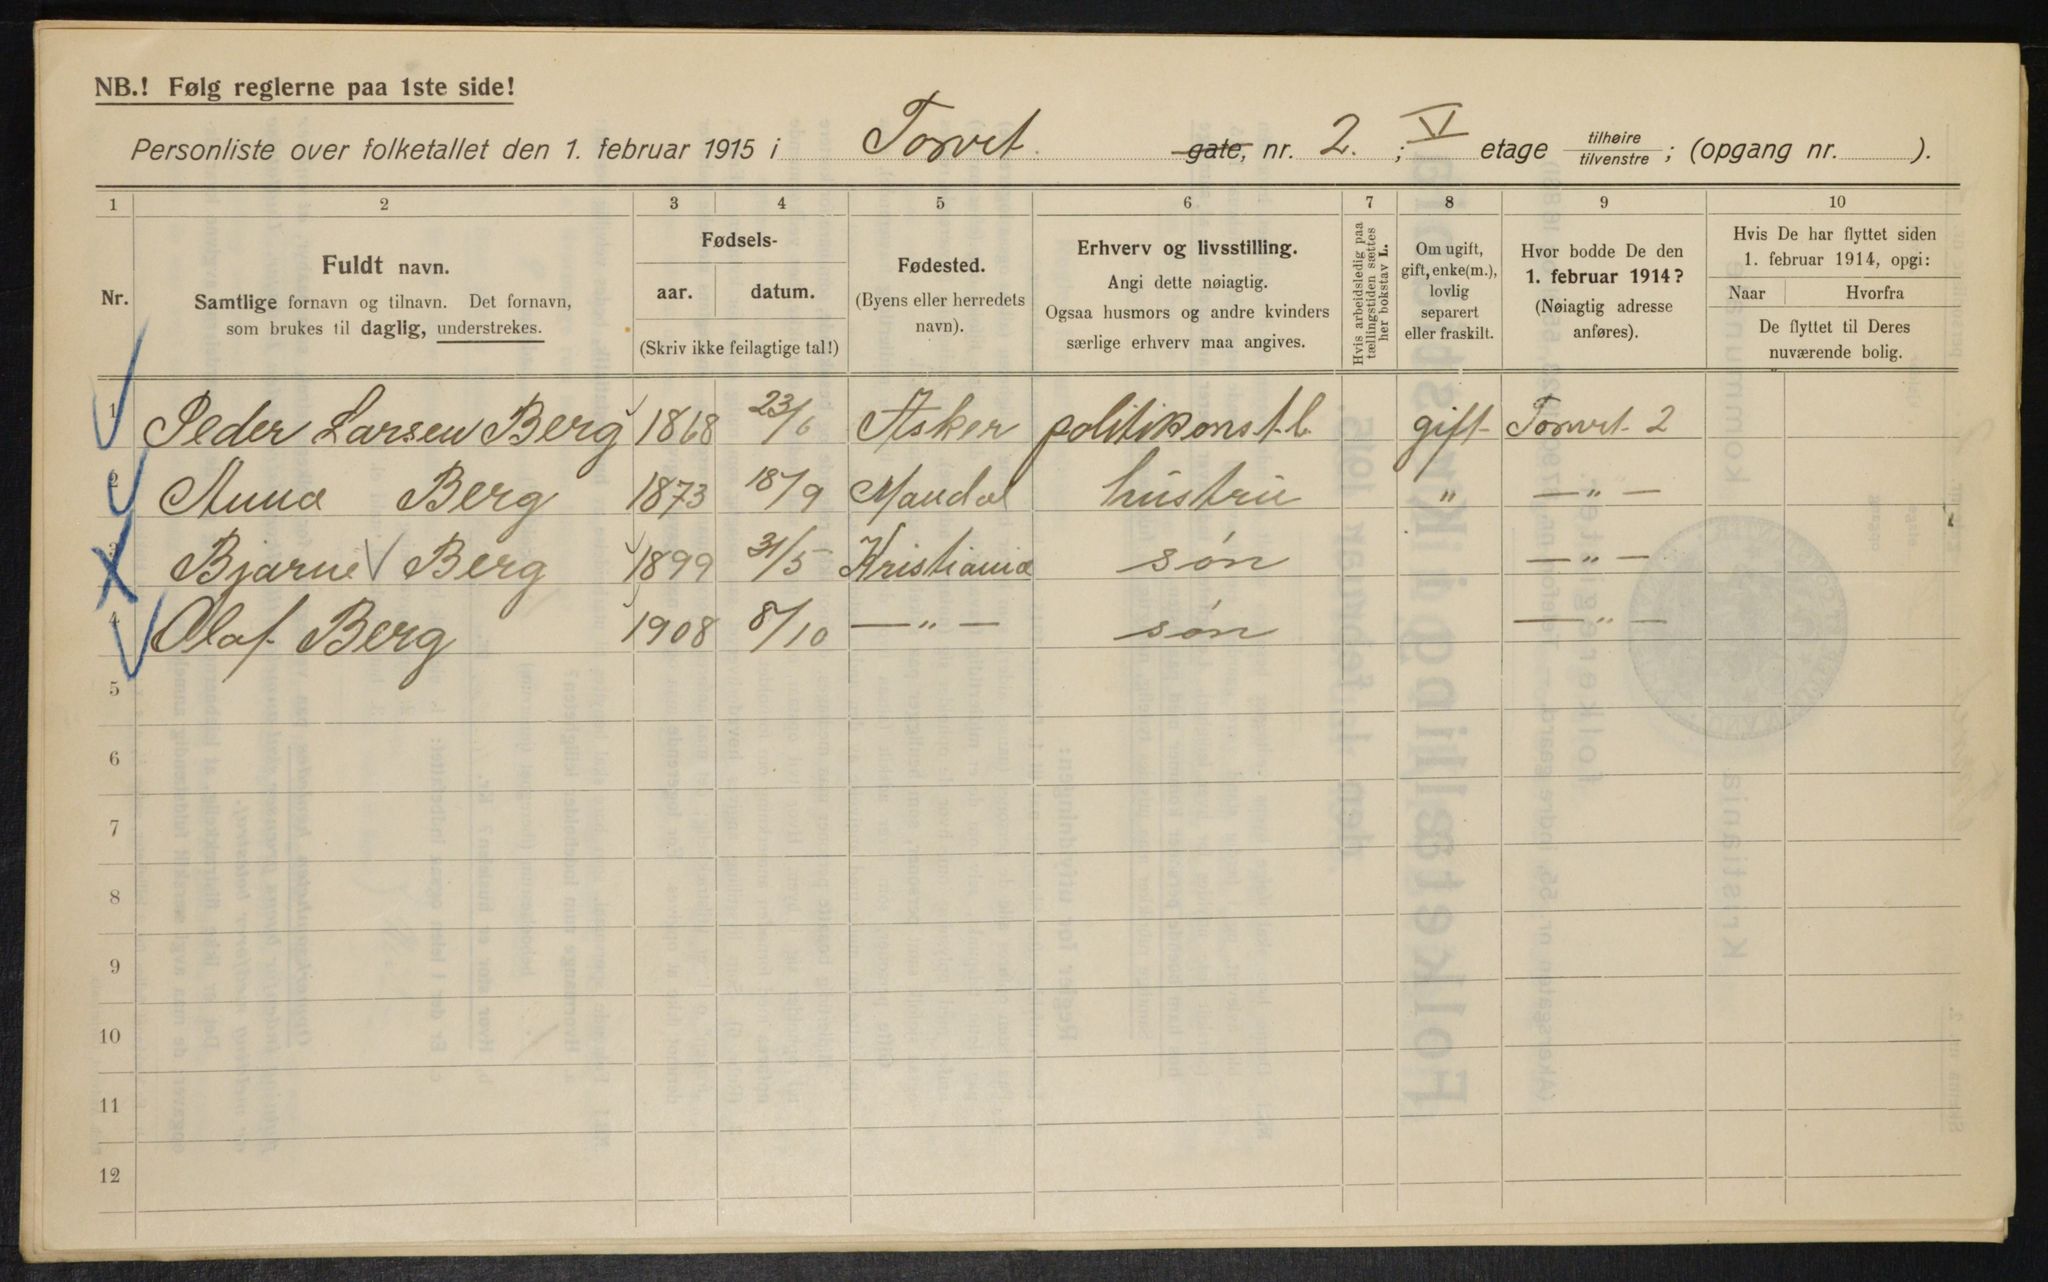 NB.! Følg reglerne paa 1ste side!
Personliste over folketallet den 1. februar 1915 i Torvet gate, nr. 2. ; V etage tilhøire tilvenstre ; (opgang nr. ).
1 2 3 4 5 6 7 8 9 10
Nr.
Fuldt navn.
Samtlige fornavn og tilnavn. Det fornavn,
som brukes til daglig, understrekes.
Fødsels-
aar. datum.
(Skriv ikke feilagtige tal!)
Fødested.
(Byens eller herredets
navn).
Erhverv og livsstilling.
Angi dette nøiagtig.
Ogsaa husmors og andre kvinders
særlige erhverv maa angives.
Hvis arbeidsledig paa
tællingstiden sættes
her bokstav L.
Om ugift,
gift, enke(m.),
lovlig
separert
eller fraskilt.
Hvor bodde De den
1. februar 1914?
(Nøiagtig adresse
anføres).
Hvis De har flyttet siden
1. februar 1914, opgi:
Naar Hvorfra
De flyttet til Deres
nuværende bolig.
1 Peder Larsen Berg 1868 23/6 Asker politikonstb. gift Torvet 2
2 Anna Berg 1873 18/9 Mandal hustru " — " —
3 Bjarne Berg 1899 31/5 Kristiania søn — " —
4 Olaf Berg 1908 8/10 — " — søn — " —
5
6
7
8
9
10
11
12